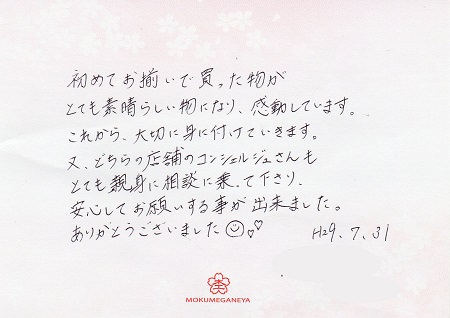 初めてお揃いで買った物が
とても素晴らしい物になり、感動しています。
これから、大切に身に付けていきます。
又、どちらの店舗のコンシェルジュさんも
とても親身に相談に乗って下さり、
安心してお願いする事が出来ました。
ありがとうございました
H29.7.31
MOKUMEGANEYA